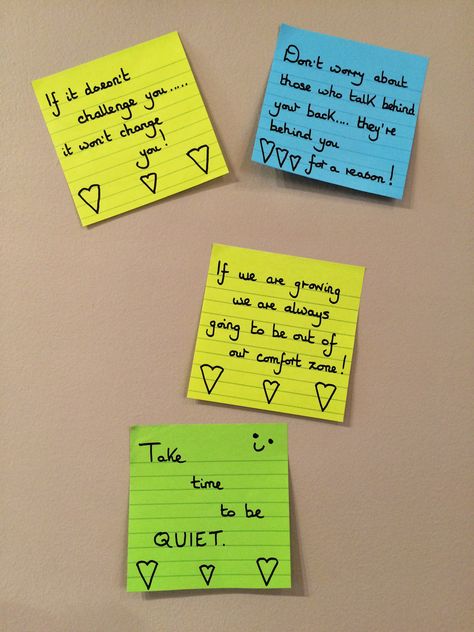 If it doesn't
challenge you.....
it won't change
you!
Don't worry about
those who talk behind
your back.... they're
behind you
for a reason!
If we are growing
we are always
going to be out of
our comfort zone!
Take
time
to be
QUIET.